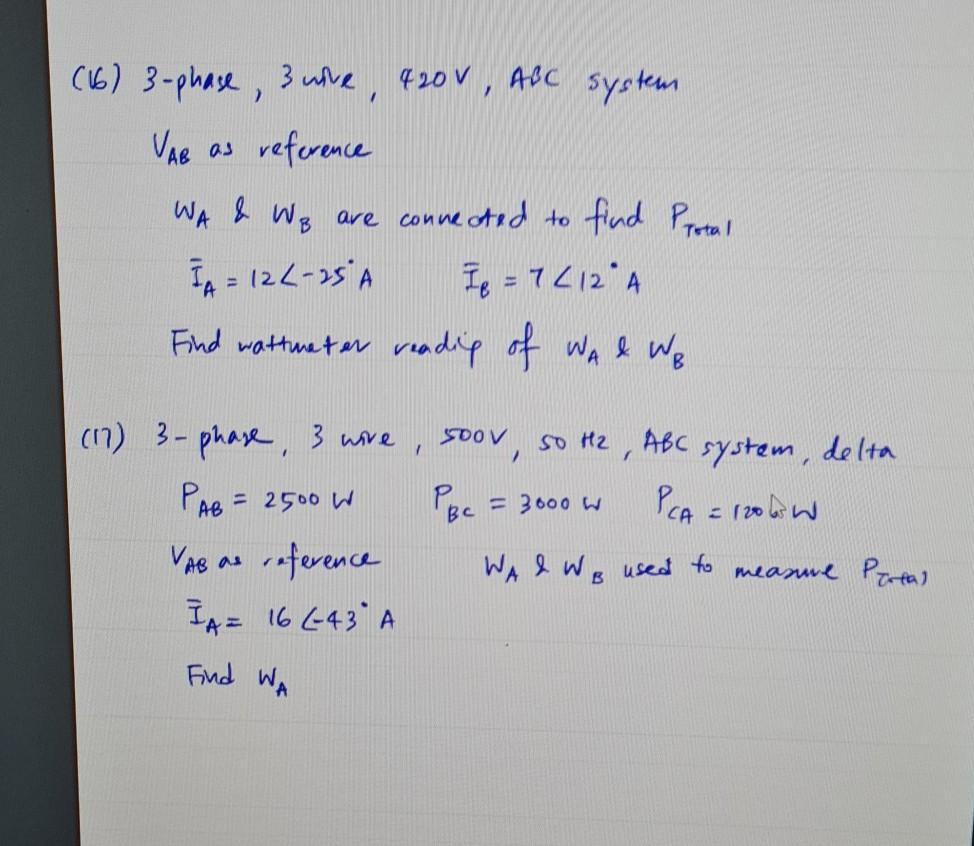 (16) 3-phase, 3 wire, 420V, ABC system
VAB as reference
WA & WB are connected to find PTotal
ĪA = 12∠-25° A ĪB = 7∠12° A
Find wattmeter readip of WA & WB
(17) 3-phase, 3 wire, 500V, 50 Hz, ABC system, delta
PAB = 2500 W PBC = 3000 W PCA = W
VAB as reference WA & WB used to measure PTotal
ĪA = 16∠-43° A
Find WA